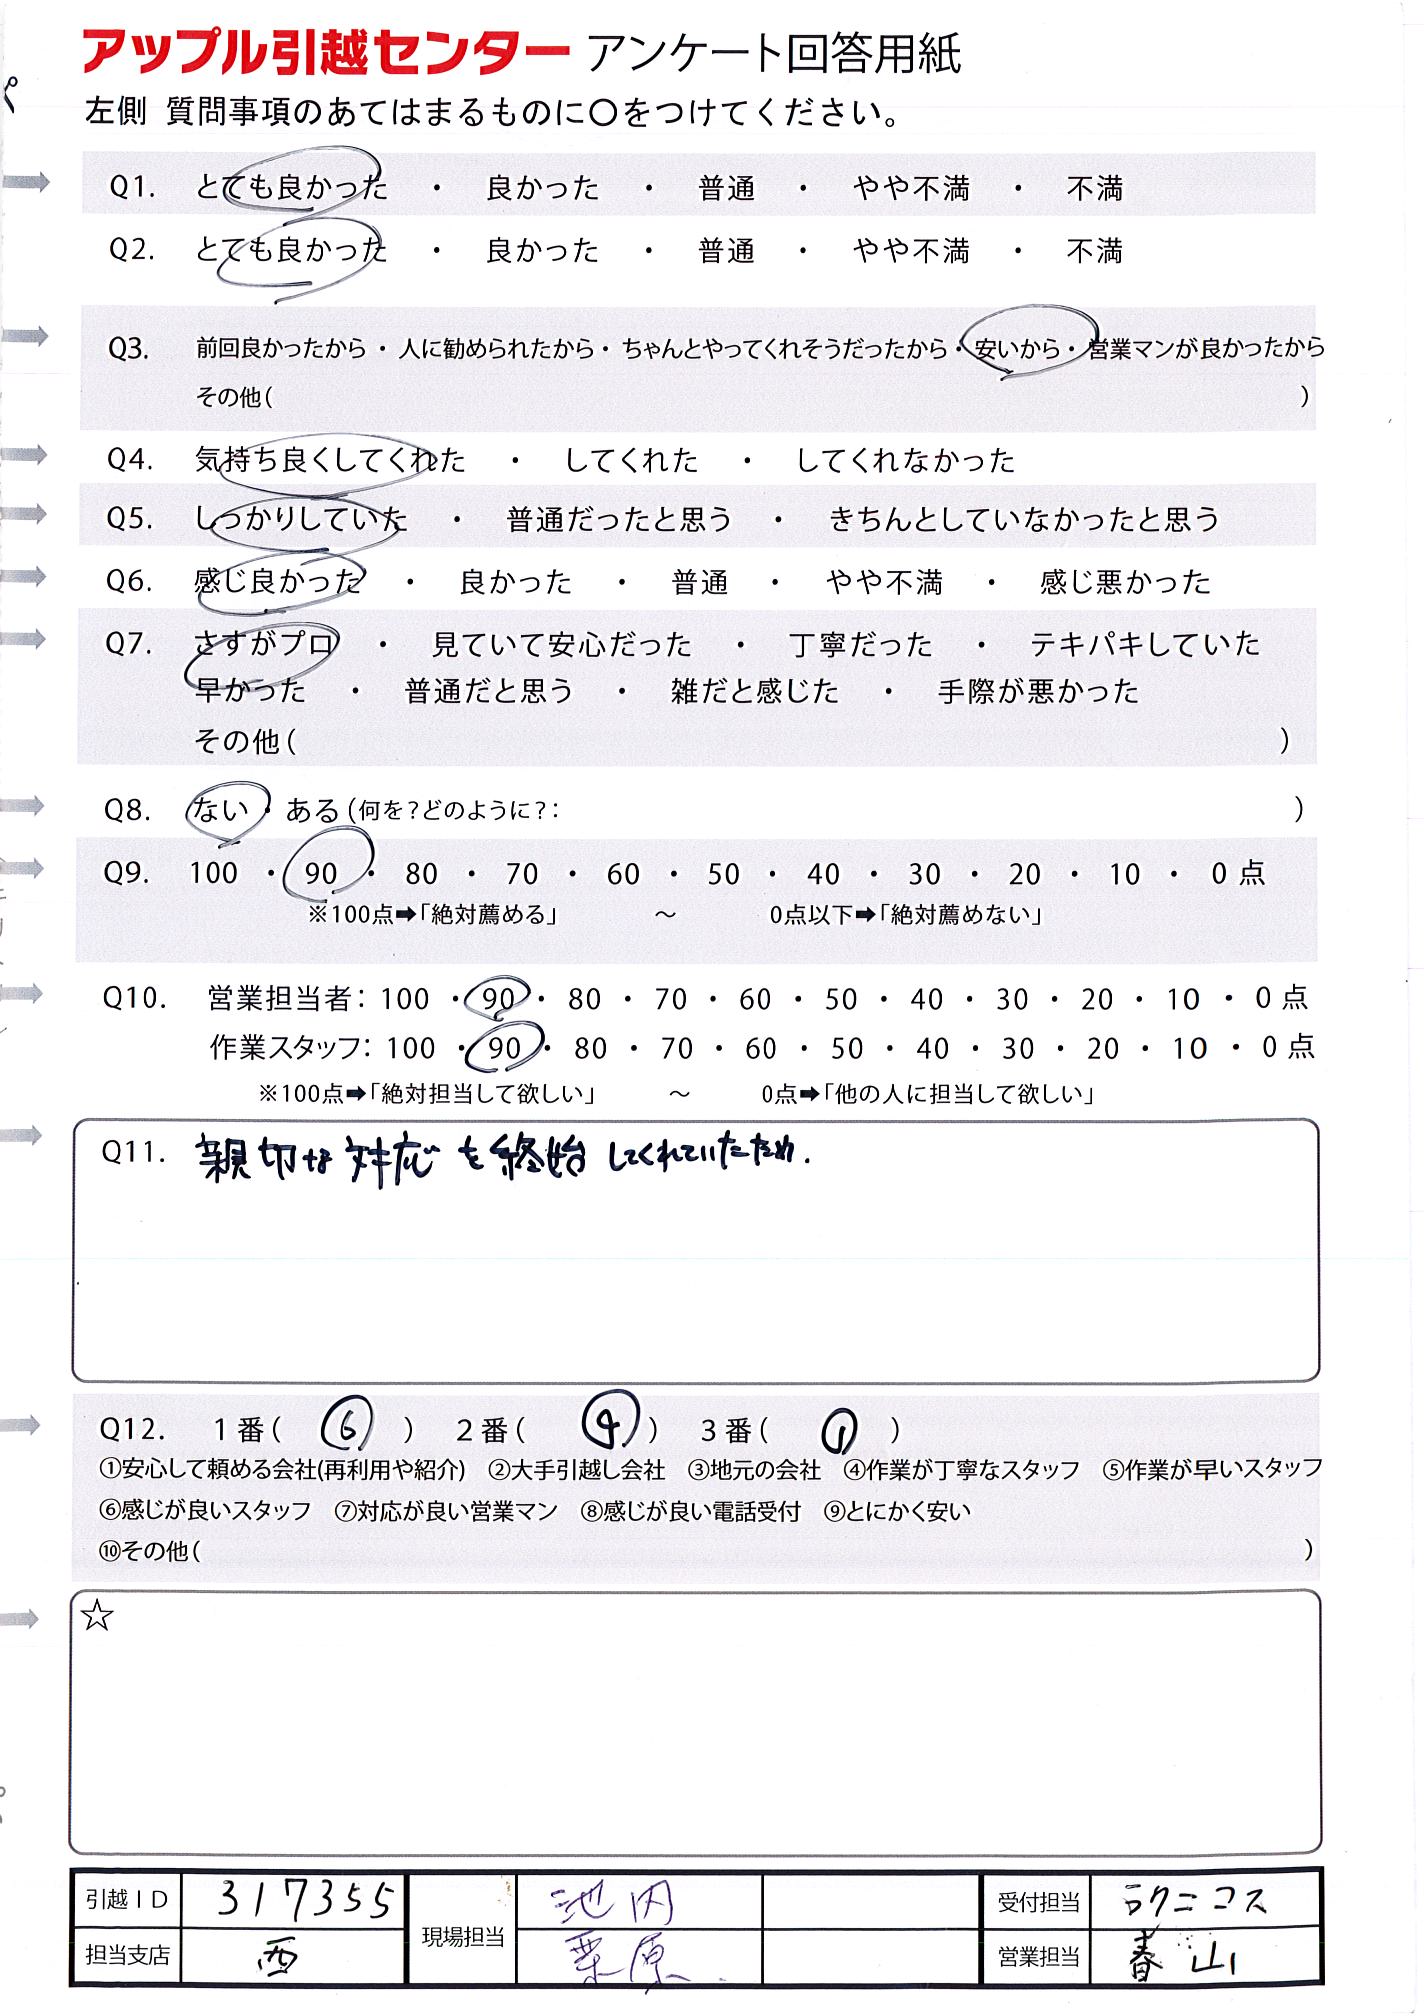 アップル引越センター アンケート回答用紙
左側 質問事項のあてはまるものに○をつけてください。
Q1. とても良かった ・ 良かった ・ 普通 ・ やや不満 ・ 不満
Q2. とても良かった ・ 良かった ・ 普通 ・ やや不満 ・ 不満
Q3. 前回良かったから・人に勧められたから・ちゃんとやってくれそうだったから・安いから・営業マンが良かったから
その他( )
Q4. 気持ち良くしてくれた ・ してくれた ・ してくれなかった
Q5. しっかりしていた ・ 普通だったと思う ・ きちんとしていなかったと思う
Q6. 感じ良かった ・ 良かった ・ 普通 ・ やや不満 ・ 感じ悪かった
Q7. さすがプロ ・ 見ていて安心だった ・ 丁寧だった ・ テキパキしていた
早かった ・ 普通だと思う ・ 雑だと感じた ・ 手際が悪かった
その他( )
Q8. ない・ある(何を?どのように?: )
Q9. 100 ・ 90 ・ 80 ・ 70 ・ 60 ・ 50 ・ 40 ・ 30 ・ 20 ・ 10 ・ 0点
※100点➡「絶対薦める」 ～ 0点以下➡「絶対薦めない」
Q10. 営業担当者: 100 ・ 90 ・ 80 ・ 70 ・ 60 ・ 50 ・ 40 ・ 30 ・ 20 ・ 10 ・ 0点
作業スタッフ: 100 ・ 90 ・ 80 ・ 70 ・ 60 ・ 50 ・ 40 ・ 30 ・ 20 ・ 10 ・ 0点
※100点➡「絶対担当して欲しい」 ～ 0点➡「他の人に担当して欲しい」
Q11. 親切な対応を終始してくれていたため.
Q12. 1番( ⑥ ) 2番( ④ ) 3番( ① )
①安心して頼める会社(再利用や紹介) ②大手引越し会社 ③地元の会社 ④作業が丁寧なスタッフ ⑤作業が早いスタッフ
⑥感じが良いスタッフ ⑦対応が良い営業マン ⑧感じが良い電話受付 ⑨とにかく安い
⑩その他( )
☆
引越ID 317355 現場担当 池内 受付担当 ラクニコス
担当支店 西 栗原 営業担当 春山